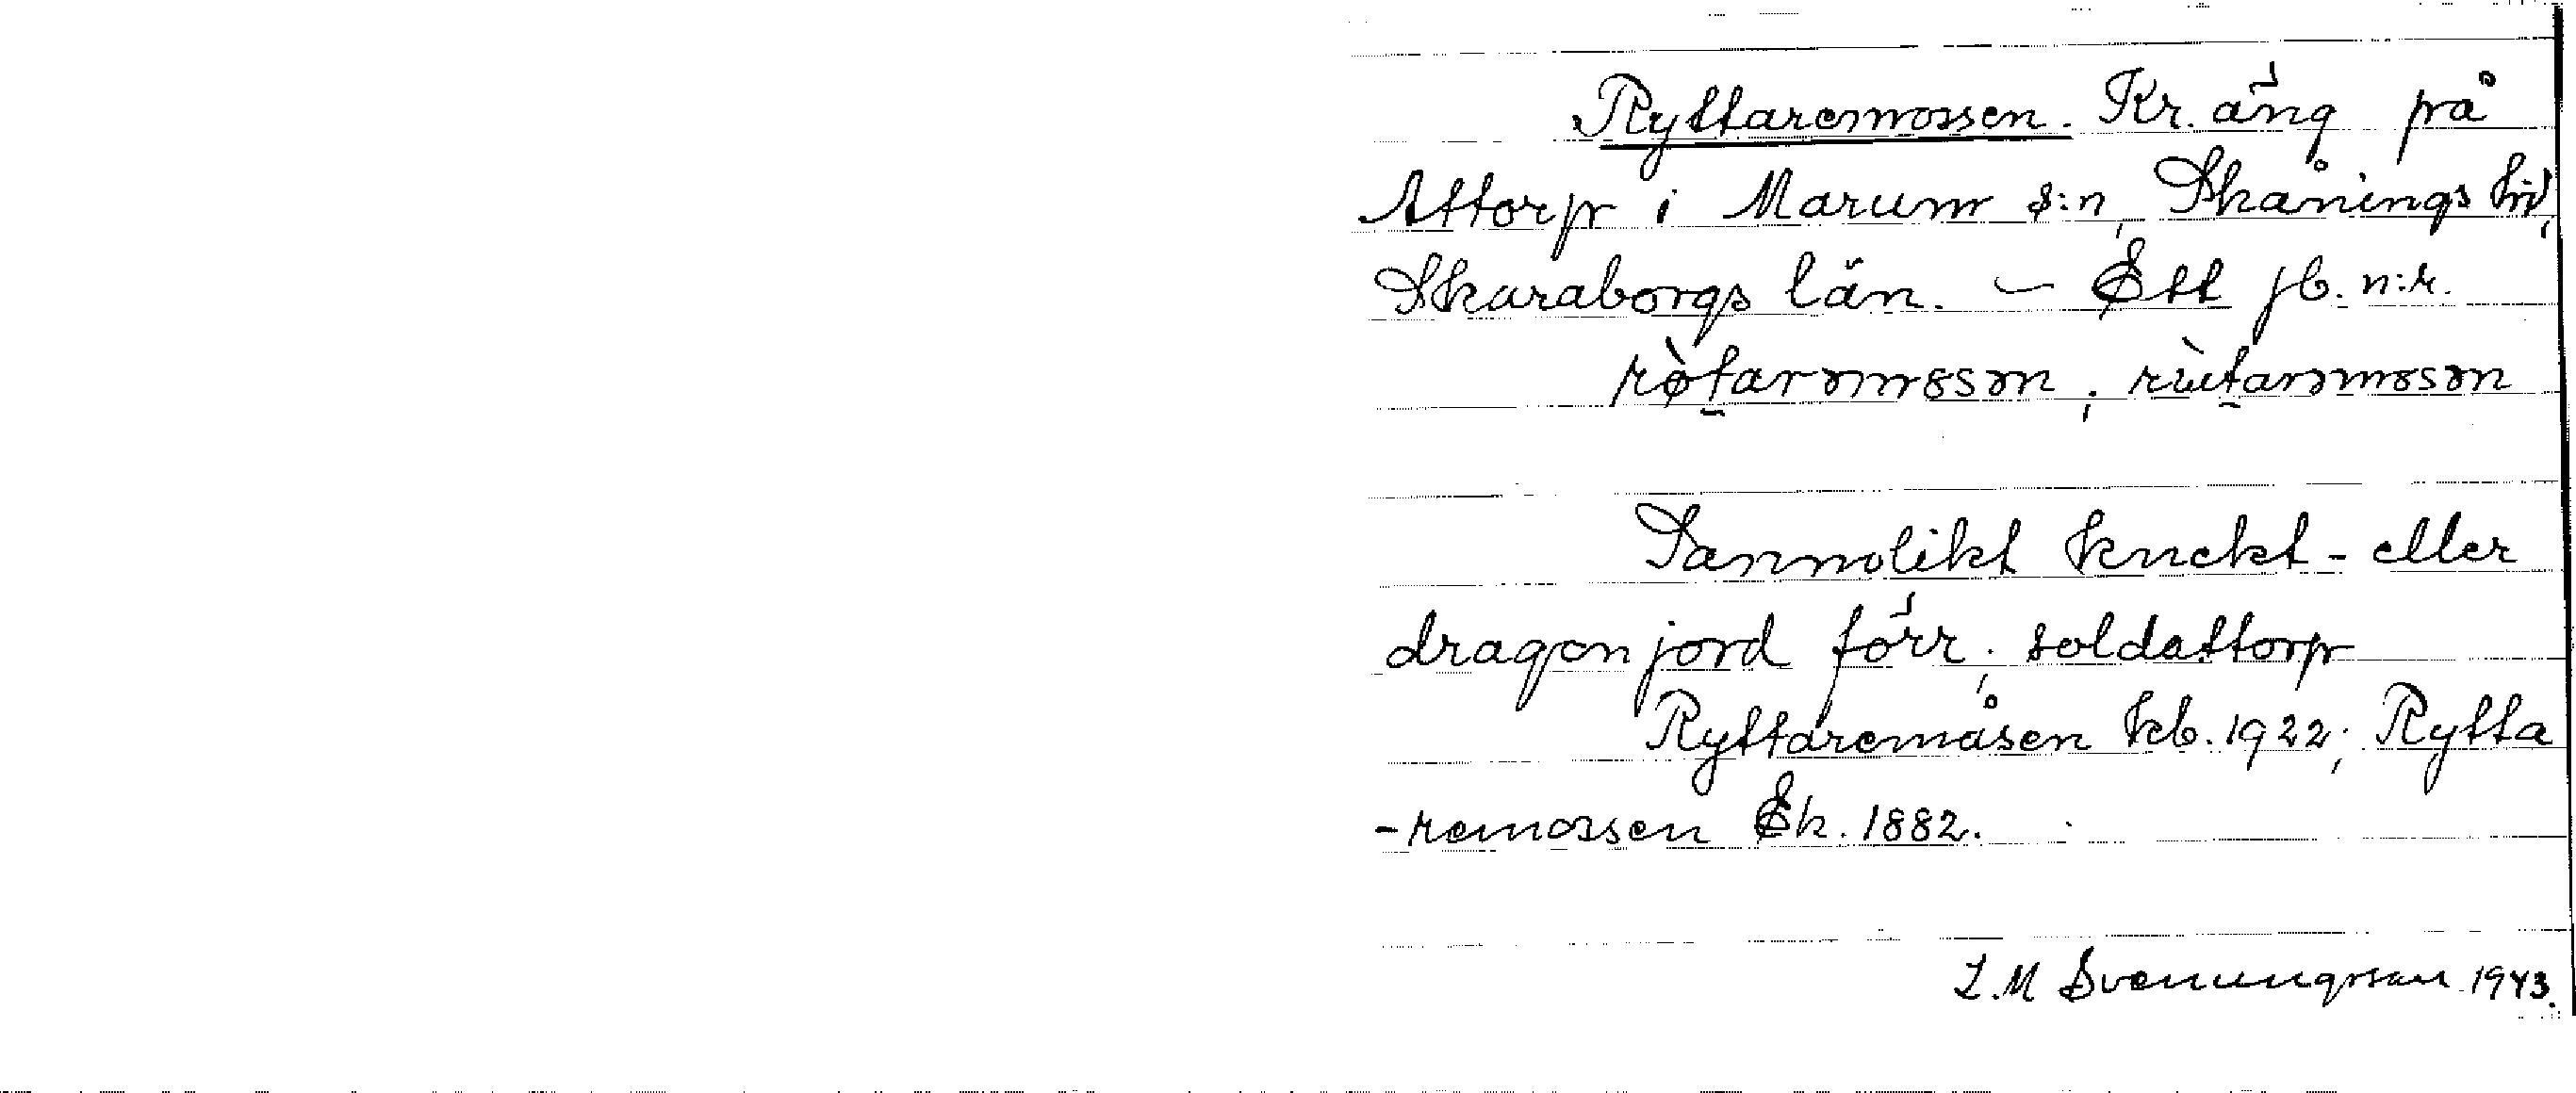 Ryttaremossen. Kr. äng på
Attorp i Marum s:n, Skånings hd,
Skaraborgs län. – Ett jb. n:r.
Sannolikt knekt- eller
dragonjord förr; soldattorp
Ryttaremåsen kb. 1922; Rytta
-remossen Ek. 1882.
L.M Svenungsson 1943.